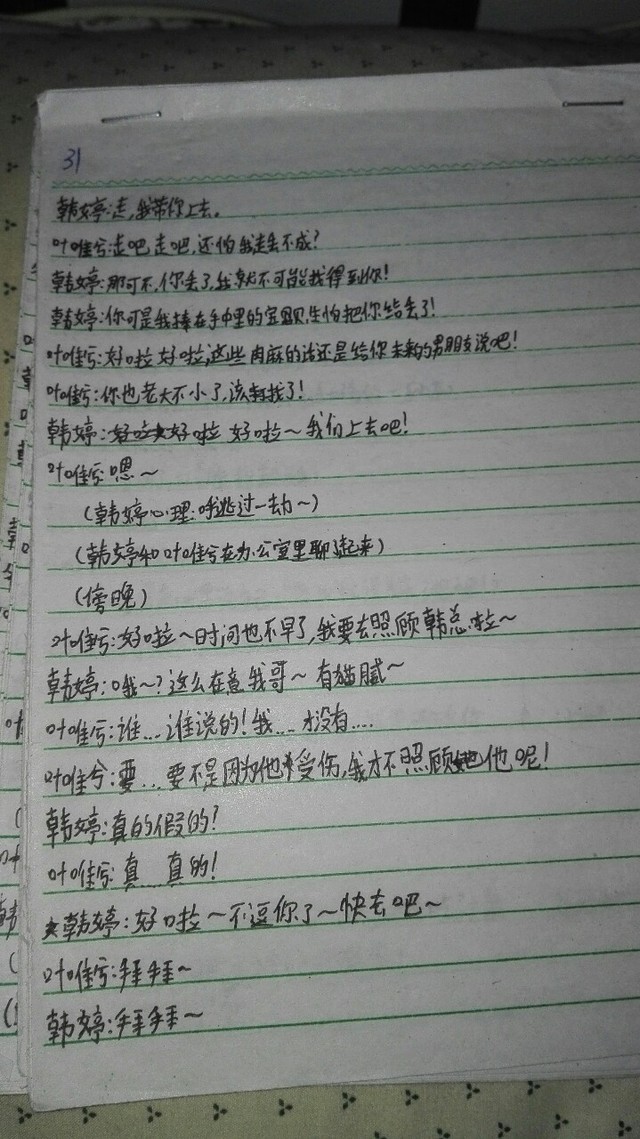 31
韩婷:走,我带你上去。
叶唯兮:走吧,走吧,还怕我走丢不成?
韩婷:那可不,你丢了,我就不可能找得到你!
韩婷:你可是我捧在手中里的宝贝,生怕把你给丢了!
叶唯兮:好啦好啦,这些肉麻的话还是给你未来的男朋友说吧!
叶唯兮:你也老大不小了,该找了!
韩婷:好啦 好啦~我们上去吧!
叶唯兮:嗯~
(韩婷心理:哦逃过一劫~)
(韩婷和叶唯兮在办公室里聊了起来)
(傍晚)
叶唯兮:好啦~时间也不早了,我要去照顾韩总啦~
韩婷:哦~?这么在意我哥~有猫腻~
叶唯兮:谁...谁说的!我...才没有....
叶唯兮:要...要不是因为他受伤,我才不照顾他呢!
韩婷:真的假的?
叶唯兮:真...真的!
韩婷:好啦~不逗你了~快去吧~
叶唯兮:
韩婷: